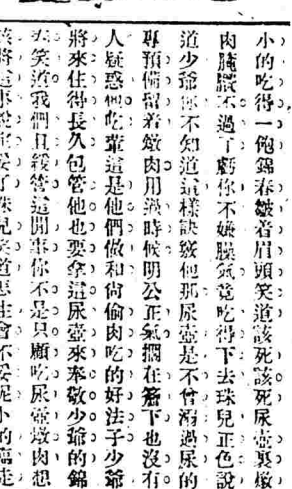 小的吃得一飽錦春皺着眉頭笑道該死該死尿壺裏燉
肉腌臢不過了虧你不嫌臊氣竟吃得下去珠兒正色說
道少爺你不知道這樣訣竅他那尿壺是不曾溺過尿的
專預備留着燉肉用過時候明公正氣擱在牀下也沒有
人疑惑他吃葷這是他們做和尙偷肉吃的好法子少爺
將來住得長久包管他也要拿這尿壺來奉敬少爺的錦
笑道我們且緩管這閒事你不是只顧吃尿壺燉肉想
將這事說完妥了珠兒笑道怎生會不妥呢小的臨走